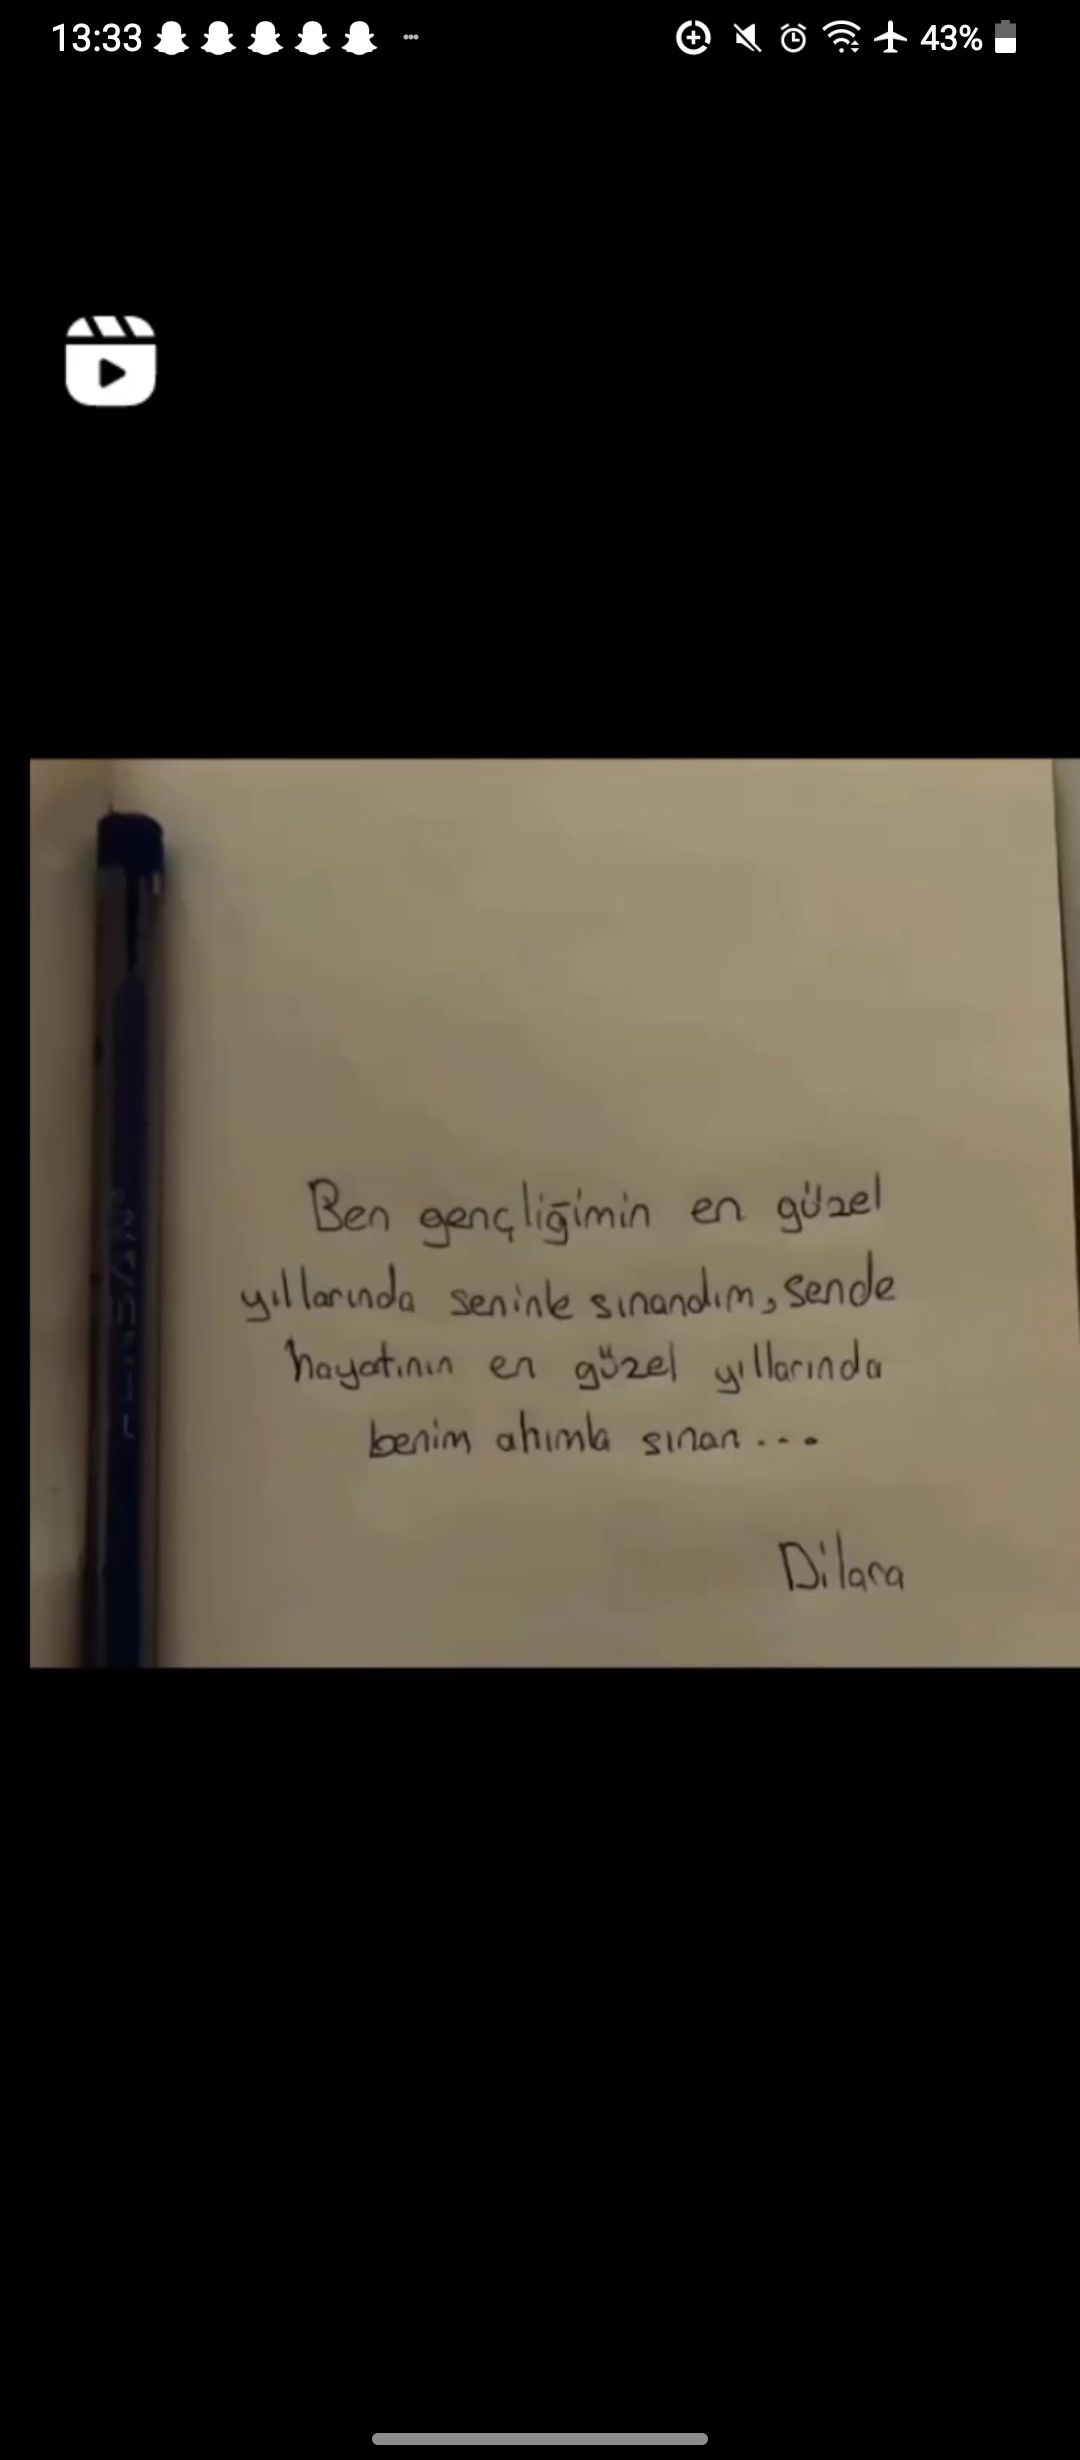 13:33
43%
Ben gençliğimin en güzel
yıllarında seninle sınandım, sende
hayatının en güzel yıllarında
benim ahımla sınan...
Dilara